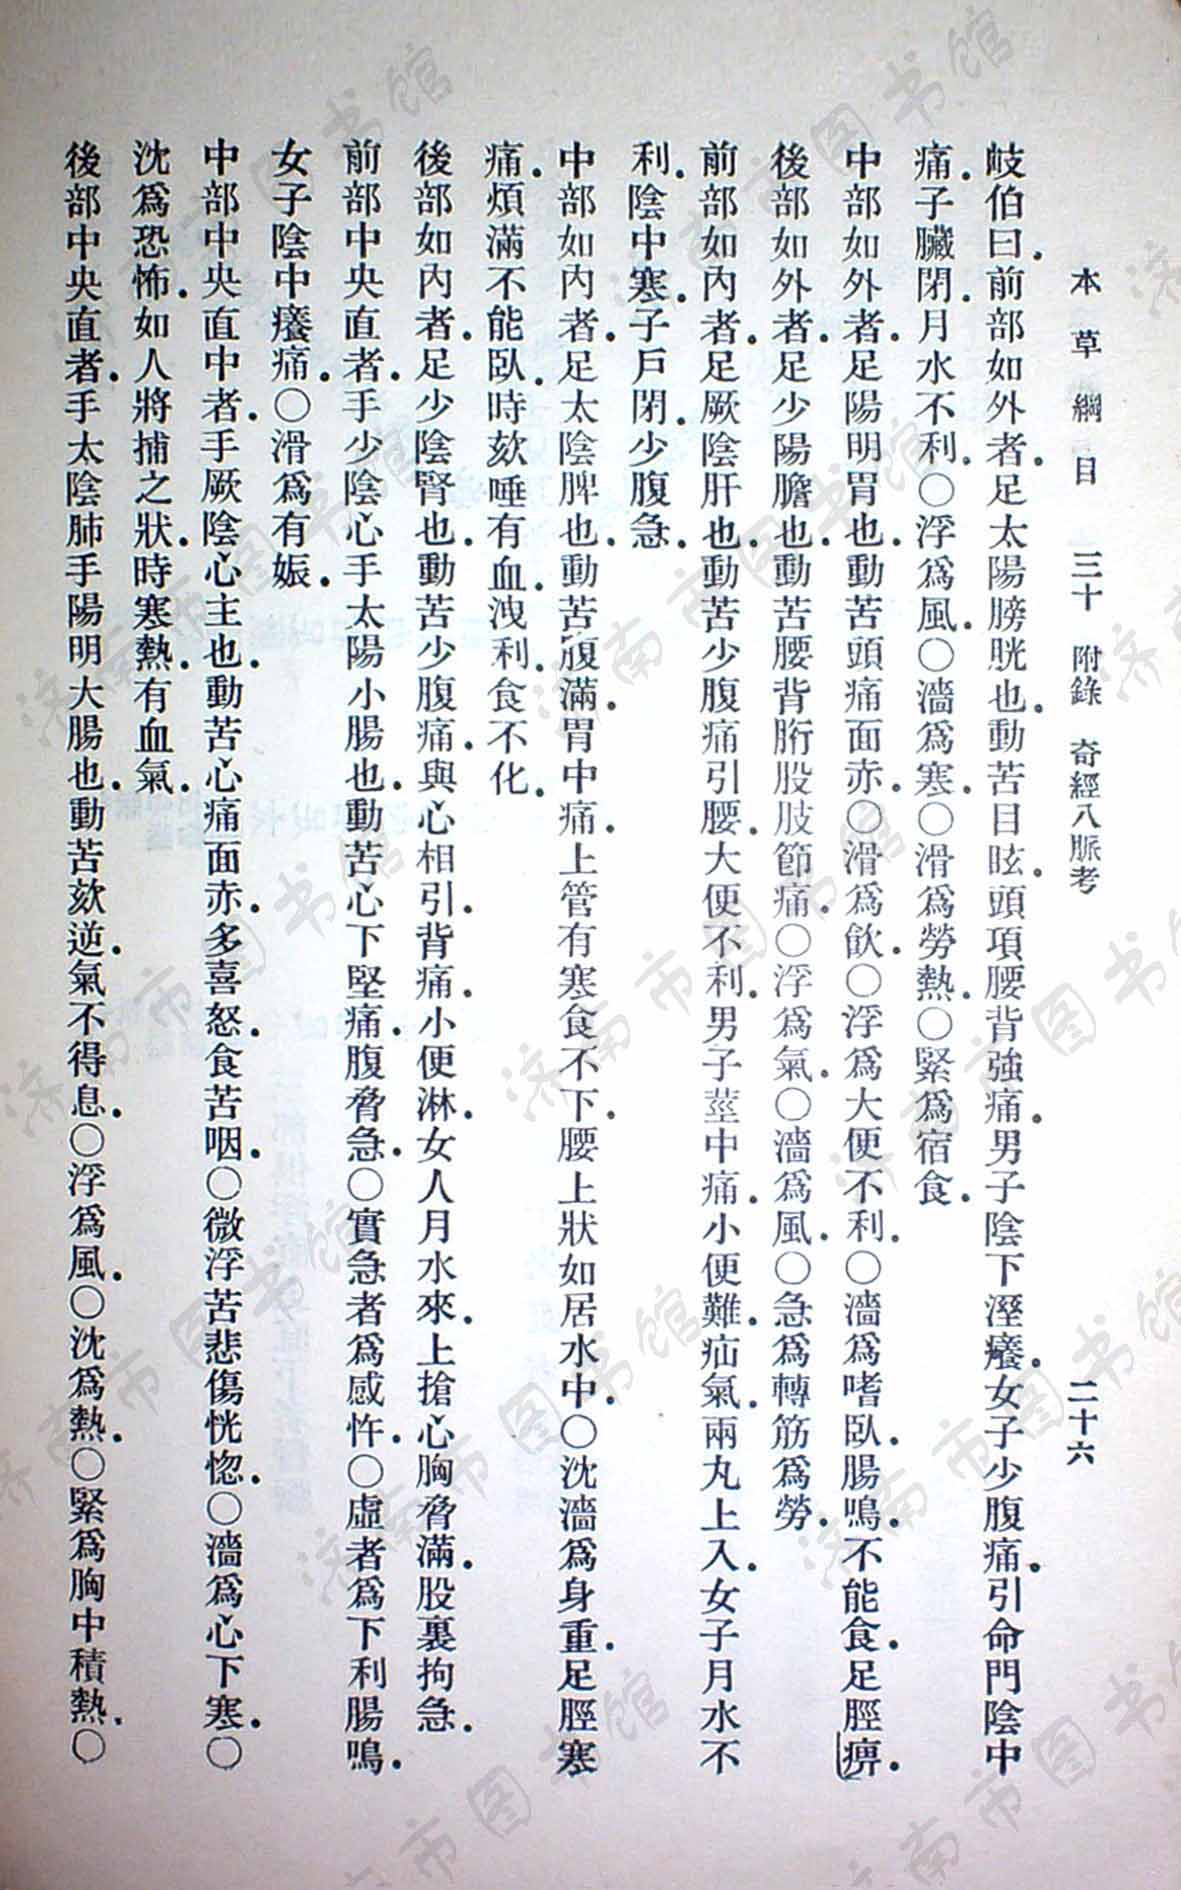 本草綱目 三十 附錄 奇經八脈考 二十六
岐伯曰．前部如外者．足太陽膀胱也．動苦目眩．頭項腰背強痛．男子陰下溼癢．女子少腹痛．引命門陰中
痛．子臟閉．月水不利．○浮爲風．○濇爲寒．○滑爲勞熱．○緊爲宿食．
中部如外者．足陽明胃也．動苦頭痛面赤．○滑爲飮．○浮爲大便不利．○濇爲嗜臥．腸鳴．不能食．足脛痹．
後部如外者．足少陽膽也．動苦腰背胻股肢節痛．○浮爲氣．○濇爲風．○急爲轉筋爲勞．
前部如內者．足厥陰肝也．動苦少腹痛引腰．大便不利．男子莖中痛．小便難．疝氣．兩丸上入．女子月水不
利．陰中寒．子戶閉．少腹急．
中部如內者．足太陰脾也．動苦腹滿．胃中痛．上管有寒食不下．腰上狀如居水中．○沈濇爲身重．足脛寒
痛．煩滿不能臥．時欬唾有血．洩利．食不化．
後部如內者．足少陰腎也．動苦少腹痛．與心相引．背痛．小便淋．女人月水來．上搶心胸脅滿．股裏拘急．
前部中央直者．手少陰心手太陽小腸也．動苦心下堅痛．腹脅急．○實急者爲感忤．○虛者爲下利腸鳴．
女子陰中癢痛．○滑爲有娠．
中部中央直中者．手厥陰心主也．動苦心痛面赤．多喜怒．食苦咽．○微浮苦悲傷恍惚．○濇爲心下寒．○
沈爲恐怖．如人將捕之狀．時寒熱．有血氣．
後部中央直者．手太陰肺手陽明大腸也．動苦欬逆．氣不得息．○浮爲風．○沈爲熱．○緊爲胸中積熱．○
济南市图书馆